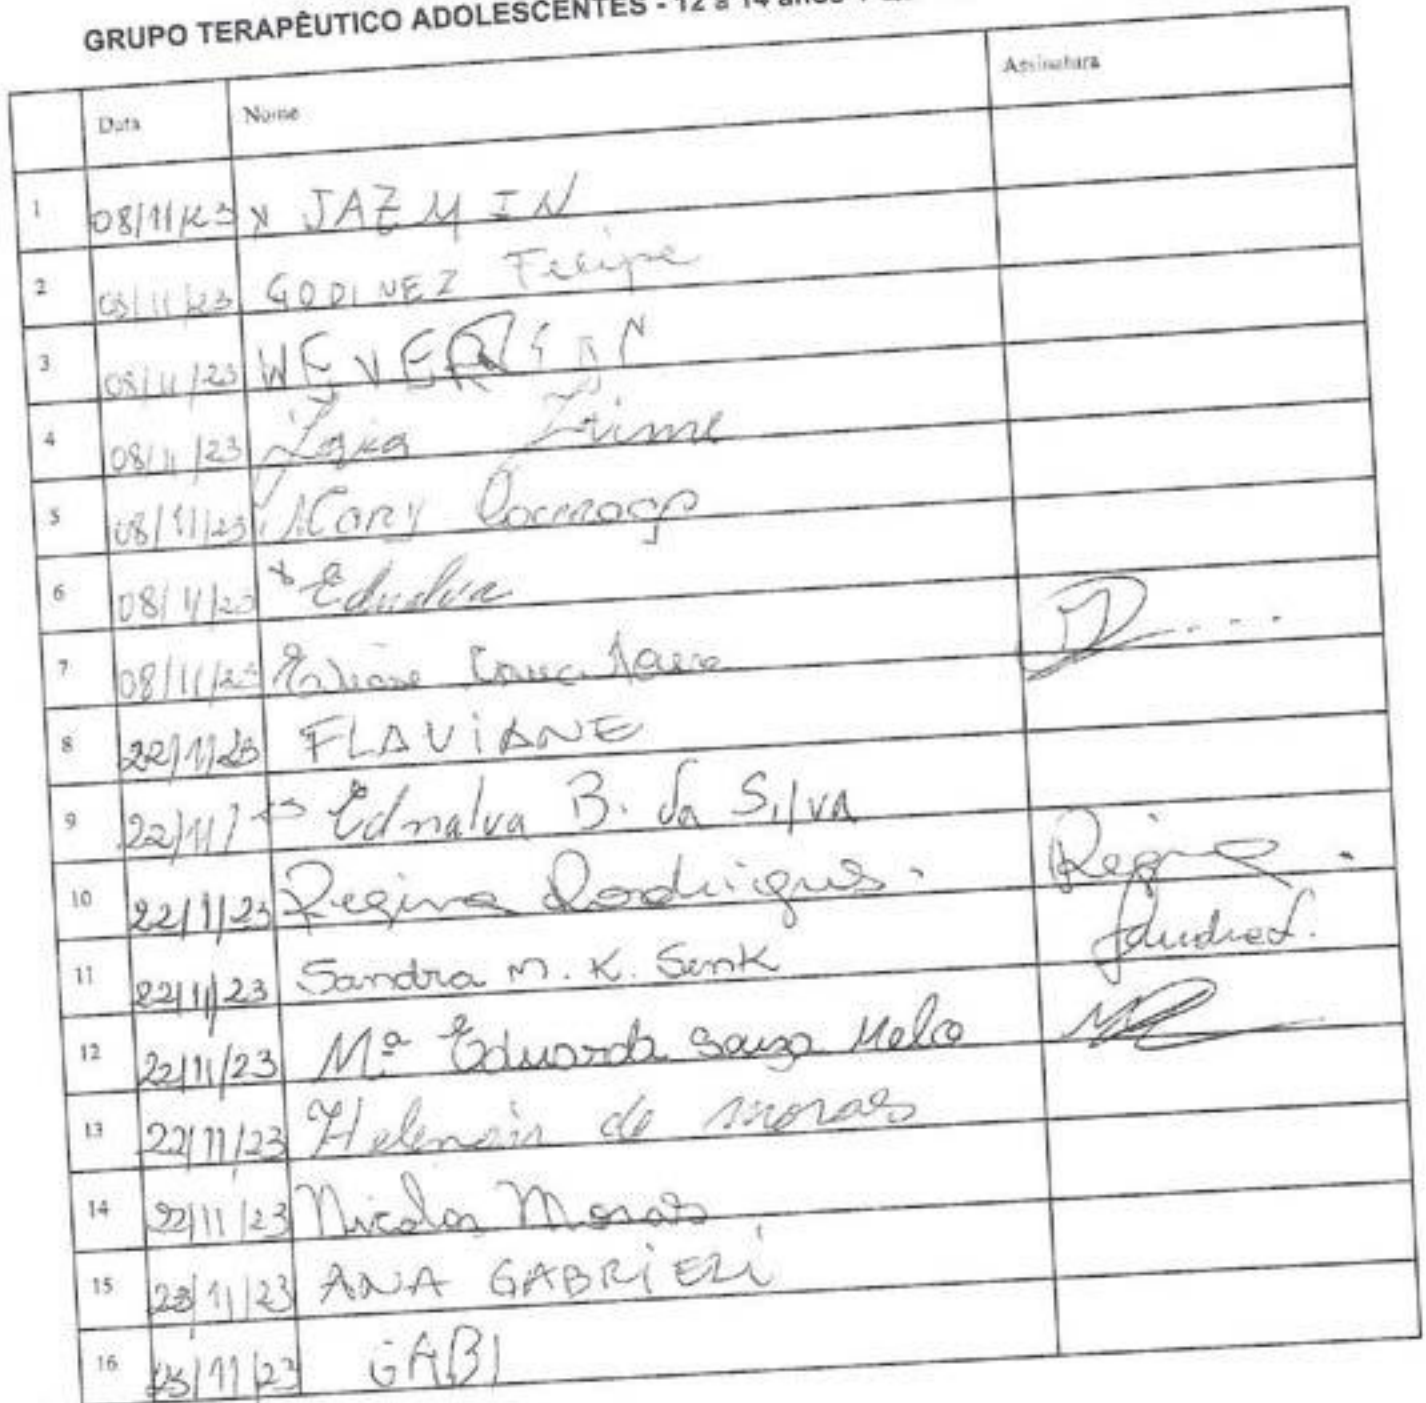 GRUPO TERAPÊUTICO ADOLESCENTES - 12 a 14 anos
Data Nome Assinatura
1 08/11/23 x JAZMIN
2 08/11/23 GODINEZ Felipe
3 08/11/23 WEVERSON
4 08/11/23
5 08/11/23 Mary
6 08/11/23 x Ednalva
7 08/11/23
8 22/11/23 FLAViANE
9 22/11/23 Ednalva B. da Silva
10 22/11/23 Regina Rodrigues. Regina.
11 22/11/23 Sandra M. K. Senk
12 22/11/23 Mª Eduarda Souza Melo
13 22/11/23 Helenair de moraes
14 22/11/23 Nicolas Moraes
15 23/11/23 ANA GABRiELi
16 23/11/23 GABI